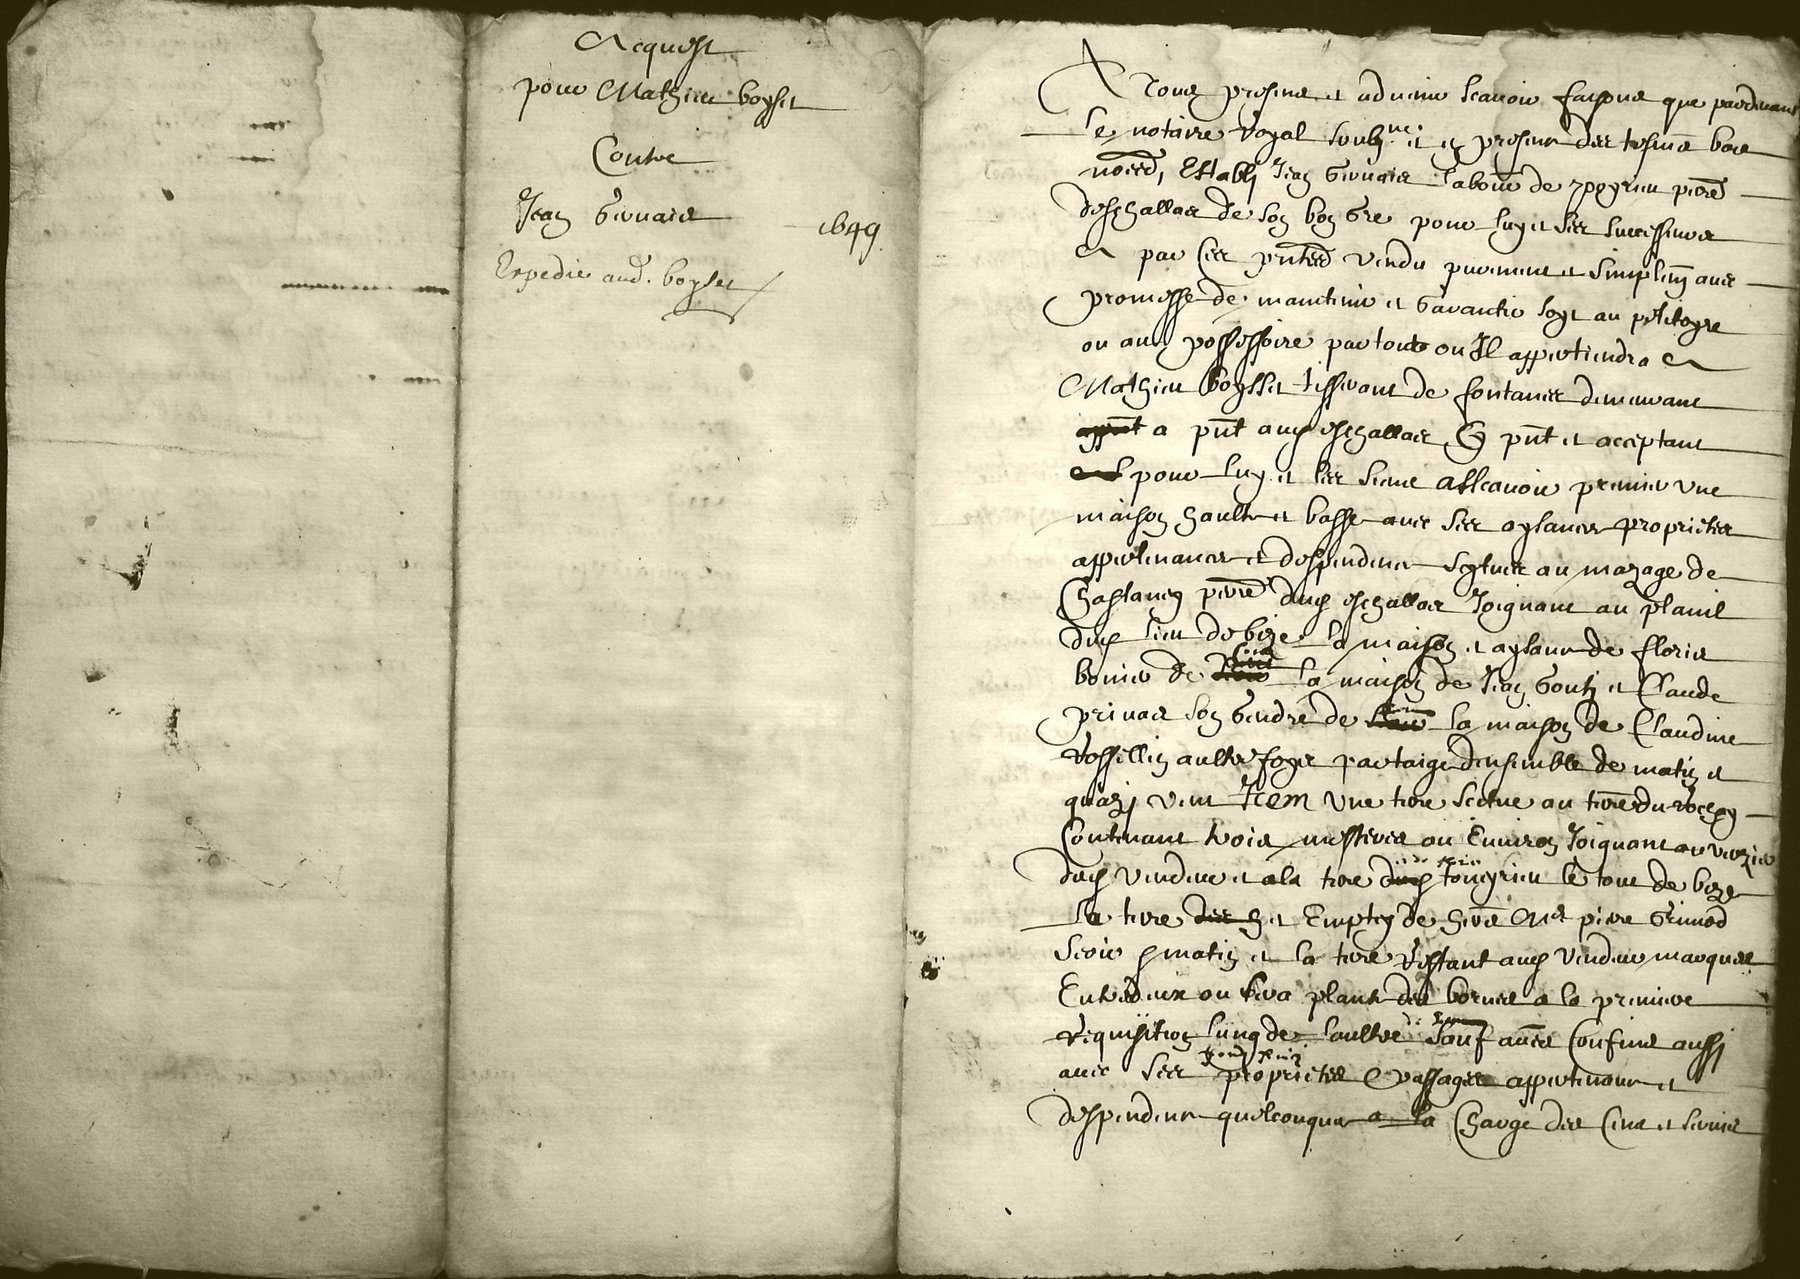 Acquest
pour Mathieu boysset
Contre
Jean Gervais
1649
Expedie aud. boysset
A Tous presens et advenir scavoir faisons que pardevant
le notaire Royal soubz.ne et en presence des tesmoins bas
nommes, Establi Jean Gervais laboureur de
deschallas de son bon gre pour luy et ses successeurs
a par ces pntes vendu purement et simplement avec
promesse de maintenir et garantir soyt au petitoyre
ou au possessoire partout ou Il appartiendra a
Mathieu boysset tisserant de fontanes demeurant
a pnt aud eschallas Cy pnt et acceptant
pour luy et les siens Assavoir premier une
maison haulte et basse avec ses aysances proprietes
appertenances et despendences scytuee au mazage de
Chastaney parroisse dud eschallas Joignant au plastre
dud lieu de bize la maison et aysance de floris
bonier de la maison de Jean Gouti et Claude
privas son gendre de la maison de Claudine
Rossellin aultrefoys partaige densemble de matin et
quazi vent Item une terre scitue au terre du
Contenant trois mesteres ou Environ Joignant au verzier
dud vendeur et a la terre le tout de bize
la terre et de pierre Grimod
soir matin et la terre Restant aud vendeur marquee
Entredeux ou sera plante des bornes a la premiere
requisition lung de laultre sauf aues Confins aussi
avec ses proprietes passages appertenances et
despendences quelconques a la Charge des Cens et servis